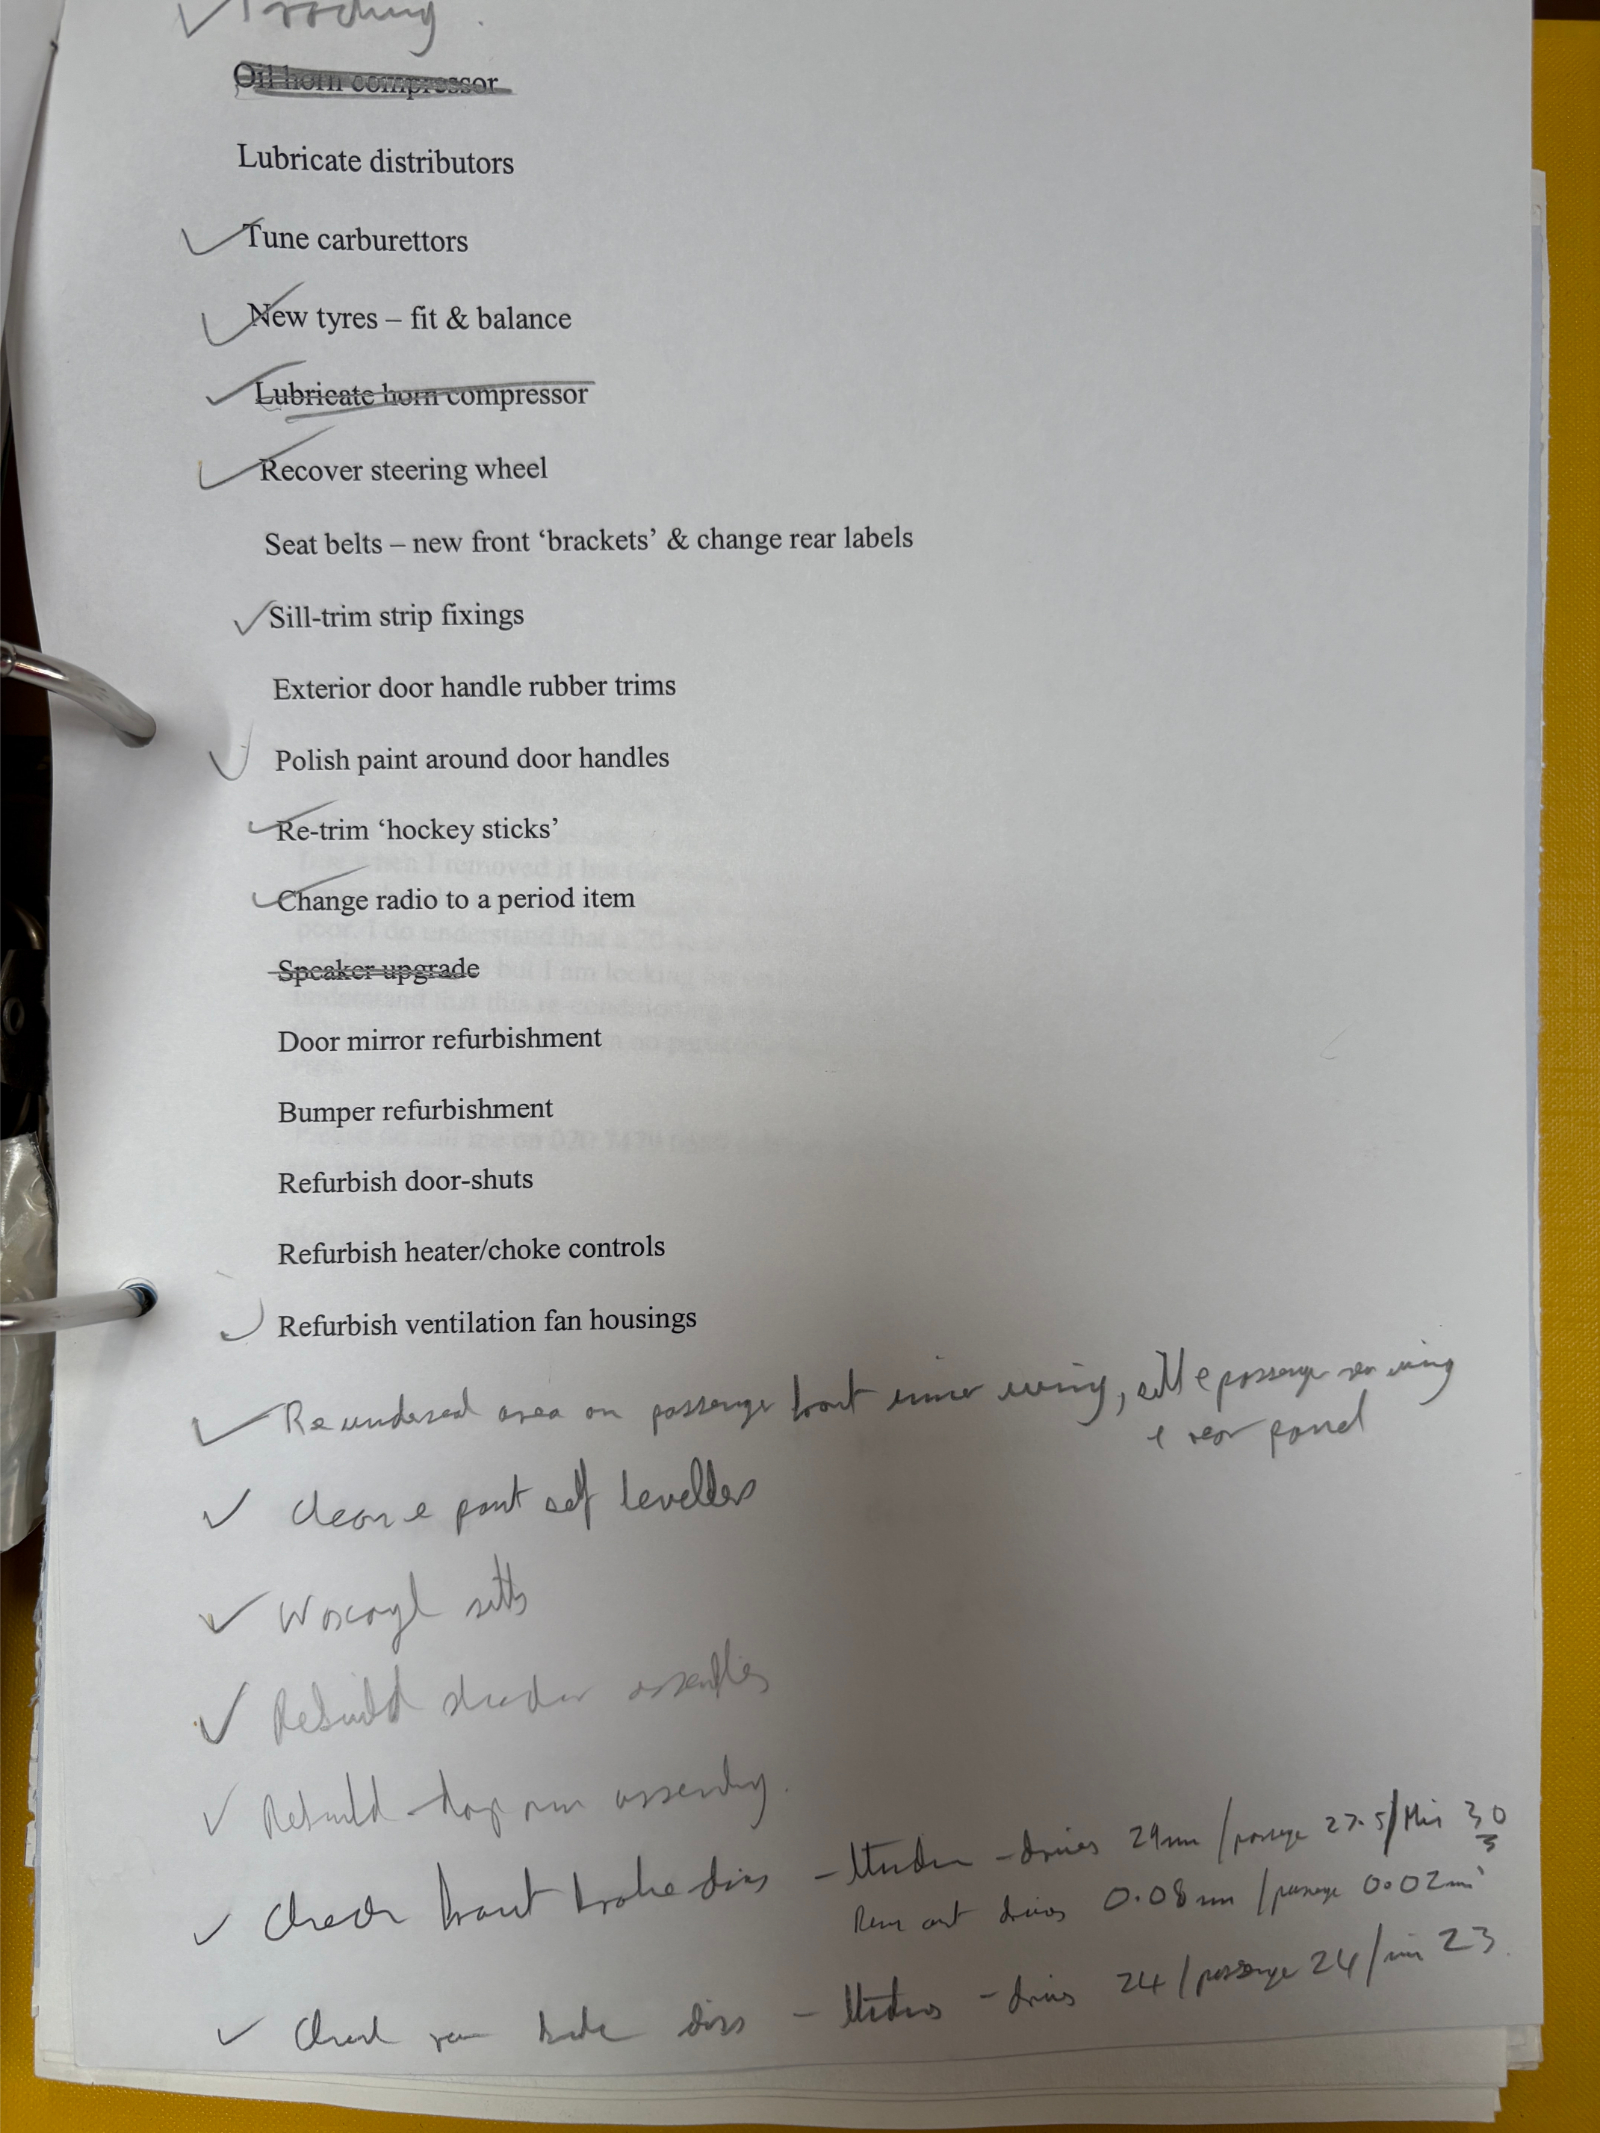 Tracking.
Oil horn compressor
Lubricate distributors
Tune carburettors
New tyres – fit & balance
Lubricate horn compressor
Recover steering wheel
Seat belts – new front ‘brackets’ & change rear labels
Sill-trim strip fixings
Exterior door handle rubber trims
Polish paint around door handles
Re-trim ‘hockey sticks’
Change radio to a period item
Speaker upgrade
Door mirror refurbishment
Bumper refurbishment
Refurbish door-shuts
Refurbish heater/choke controls
Refurbish ventilation fan housings
Re underseal area on passenger front inner wing, sill & passenger rear wing
& rear panel
Clean & paint self levellers
Waxoyl sills
Rebuild assemblies
Rebuild drop arm assembly.
Check front brake discs – thickness – drivers 29mm / passenger 27.5 / Min 30
Run out drivers 0.08mm / passenger 0.02mm
Check rear brake discs – thickness – drivers 24 / passenger 24 / min 23